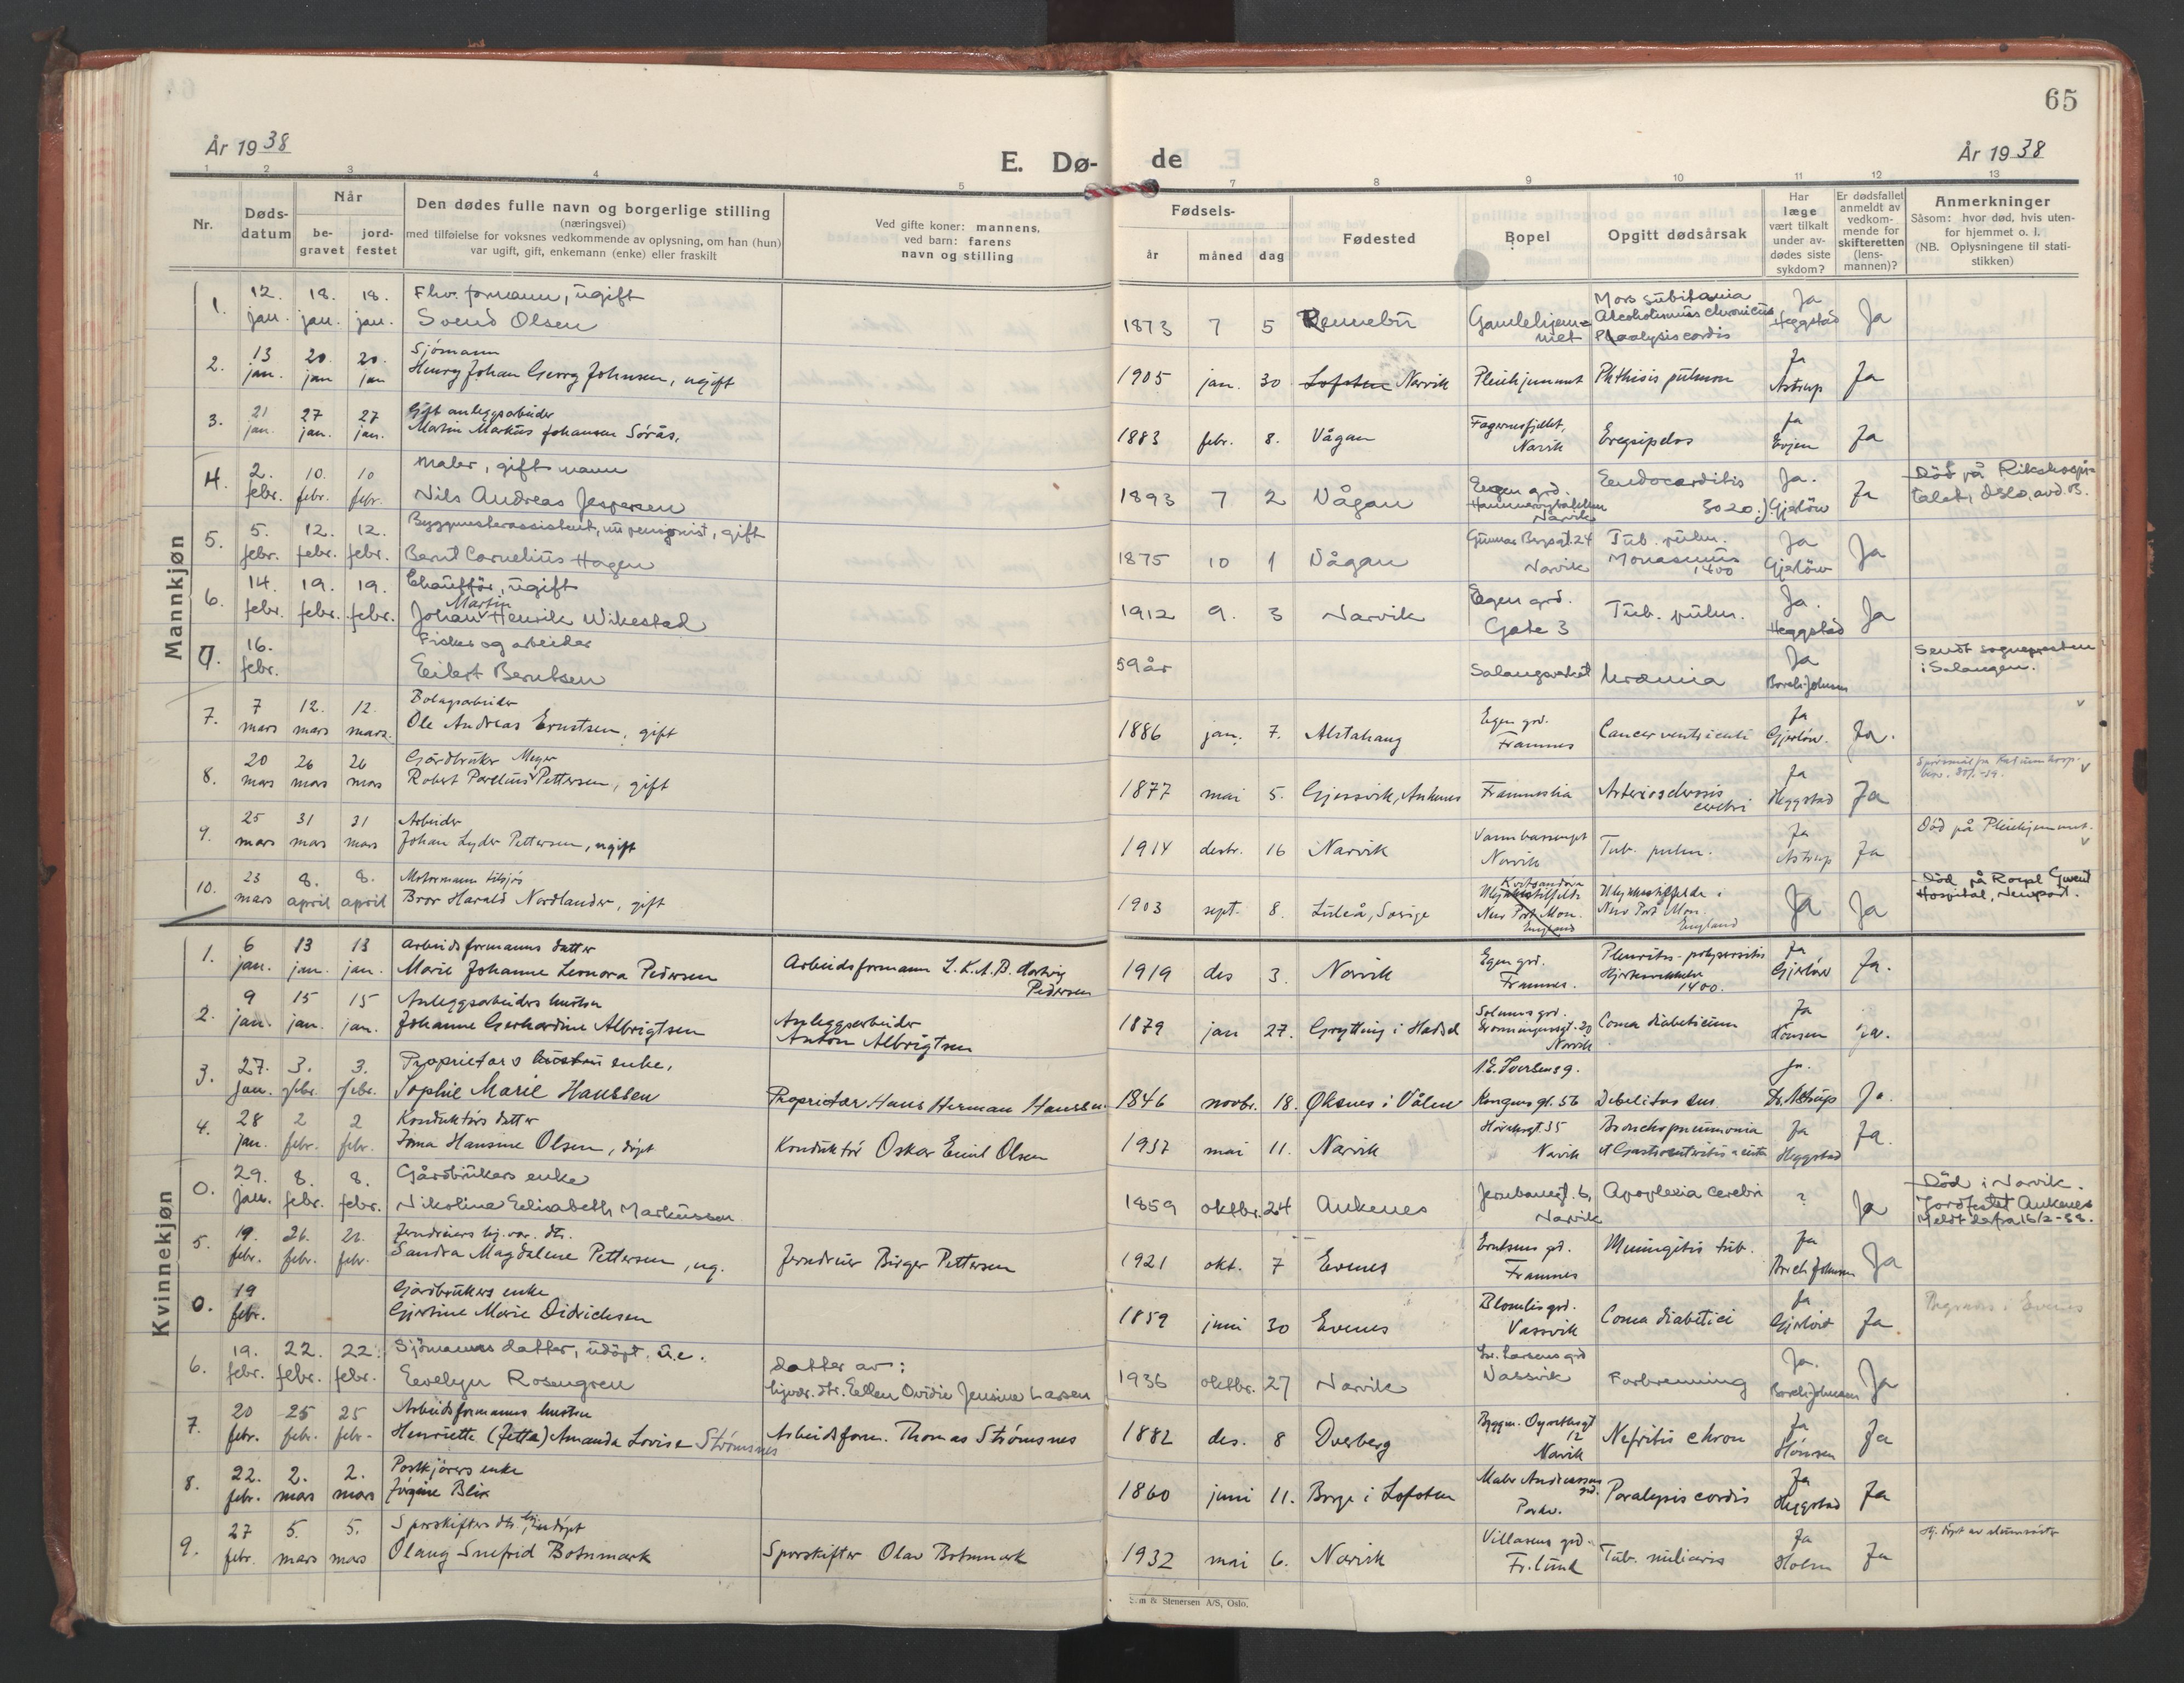 65
År 1938
E. Dø- de
År 1938
1 2 3 4 5 7 8 9 10 11 12 13
Nr.
Døds-
datum
Når
be-
gravet
jord-
festet
Den dødes fulle navn og borgerlige stilling
(næringsvei)
med tilføielse for voksnes vedkommende av oplysning, om han (hun)
var ugift, gift, enkemann (enke) eller fraskilt
Ved gifte koner: mannens,
ved barn: farens
navn og stilling
Fødsels-
år måned dag
Fødested
Bopel
Opgitt dødsårsak
Har
læge
vært tilkalt
under av-
dødes siste
sykdom?
Er dødsfallet
anmeldt av
vedkom-
mende for
skifteretten
(lens-
mannen)?
Anmerkninger
Såsom: hvor død, hvis uten-
for hjemmet o. l.
(NB. Oplysningene til stati-
stikken)
Mannkjøn
1. 12. jan. 18. jan. 18. jan. Fhv. formann, ugift
Svend Olsen
1873 7 5 Rennebu Gamlehjem-
met
Mors subitania
Alcoholismus chronicus
Paralysis cordis
Ja
Heggstad
Ja
2. 13 jan. 20. jan 20. jan Sjömann
Henry Johan Georg Johnsen, ugift
1905 jan. 30 Lofoten Narvik Pleiehjemmet Phthisis pulmon Ja
Astrup
Ja
3. 21 jan. 27 jan. 27 jan. Gift anleggsarbeider
Martin Markus Johansen Sörås,
1883 febr. 8. Vågan Fagernesfjellet,
Narvik
Ja
Evjen
Ja
4. 2. febr. 10. febr. 10 febr. Maler, gift mann
Nils Andreas Jespersen
1893 7 2 Vågan Egen grd.
Narvik
Endocarditis
3020.)
Ja.
Gjerlöw
Ja
Död på Rikshospi-
talet, Oslo, avd. B.
5. 5. febr. 12. febr. 12. febr. Byggmesterassistent, nu pensjonist, gift
Bernt Cornelius Hagen
1875 10 1 Vågan Gunnar Bergsgt. 24
Narvik
Tub. pulm.
1400
Ja
Gjerlöw
Ja
6. 14. febr. 19. febr. 19. febr. Chauffør, ugift
Martin
Johan Henrik Wikestad
1912 9. 3 Narvik Egen grd.
Gate 3
Tub. pulm.
Ja.
Heggstad
Ja
0. 16. febr. Fisker og arbeider
Eilert Berntsen
59 år Salangsverket Uræmia Ja
Borch-Johnsen
Sendt sognepresten
i Salangen.
7. 7 mars 12. mars 12. mars. Bolagsarbeider
Ole Andreas Ernstsen, gift
1886 jan. 7. Alstahaug Egen grd.
Framnes
Cancer ventriculi Ja
Gjerlöw.
Ja.
8. 20 mars 26 mars 26 mars Gårdbruker Meyer
Robert Parelius Pettersen, gift
1877 mai 5. Gjesvik, Ankenes Framneslia Arteriosclerosis
cerebri
Ja
Heggstad
Ja
9. 25 mars 31 mars 31 mars Arbeider
Johan Lyder Pettersen, ugift
1914 desbr. 16 Narvik Vannbassenget
Narvik
Tub. pulm.
Ja
Astrup
Ja
Död på Pleiehjemmet.
10. 23 mars 8. april 8. april Motormann tilsjös
Bror Harald Nordlander, gift
1903 sept. 8. Luleå, Sverige New Port Mon.
England
Ulykkestilfelde i
New Port Mon.
England
Ja Ja
Död på Royal Gwent
Hospital, Newport.
Kvinnekjøn
1. 6 jan. 13 jan. 13 jan. Arbeidsformanns datter
Marie Johanne Leonora Pedersen
Arbeidsformann L.K.A.B. Hartvig
Pedersen
1919 des 3. Narvik Egen grd.
Framnes.
1400.
Ja
Gjerlöw
Ja.
2. 9 jan. 15 jan. 15 jan. Anleggsarbeiders hustru
Johanne Gerhardine Albrigtsen
Anleggsarbeider
Anton Albrigtsen
1879 jan 27. Grytting i Hadsel
Narvik
Coma diabeticum Ja Ja.
3. 27. jan. 3. febr. 3. febr. Proprietærs hustru enke,
Sophie Marie Hanssen
Proprietær Hans Herman Hanssen.
1846 novbr. 18. Öksnes i Vålen Kongensgt. 56 Ja.
Dr. Astrup
Ja.
4. 28 jan. 2 febr. 2 febr. Konduktörs datter
Irma Hansine Olsen, döpt
Konduktör Oskar Emil Olsen
1937 mai 11. Narvik Narvik
Bronchopneumonia
Ja
Heggstad
Ja.
0. 29. jan. 8. febr. 8. febr. Gårdbrukers enke
Nikoline Elisabeth Markussen
1859 oktbr. 24 Ankenes Jernbanegt. 6,
Narvik
Apoplexia cerebri ? Ja
Död i Narvik.
Jordfestet Ankenes
Meldt derfra 15/2-38.
5. 19. febr. 26. febr. 26. febr.
Sandra Magdalene Pettersen, ug.
Jerndreier Birger Pettersen
1921 okt. 7 Evenes Framnes Meningitis tub. Ja
Borch Johnsen
Ja
0. 19 febr. Gårdbrukers enke
Gjertine Marie Didrichsen
1859 juni 30 Evenes Blomlis grd.
Vassvik
Coma diabetici Ja
Gjerlöw
Ja
Begraves i Evenes
6. 19. febr. 22. febr. 22. febr. Sjömanns datter, udöpt, u.e.
Eevelyn Rosengren
datter av:
hjvær. dtr. Ellen Ovidie Jensine Larsen
1936 oktbr. 27 Narvik Larsens grd
Vassvik
Forbrenning Ja.
Borch-Johnsen
Ja
7. 20 febr. 25 febr. 25 febr. Arbeidsformanns hustru
Henriette (Jetta) Amanda Lovise Strömsnes
Arbeidsform. Thomas Strömsnes
1882 des. 8 Dverberg 12
Narvik
Nefritis chron Ja
Hönsen
Ja
8. 22. febr. 2. mars 2. mars Postkjörers enke
Jörgine Blix
1860 juni 11. Borge i Lofoten Maler Andreassens
grd.
Parkv.
Paralysis cordis Ja
Heggstad
Ja
9. 27 febr. 5. mars 5. mars Sporskifters dtr. hj. döpt
Olaug Snefrid Botnmark
Sporskifter Olav Botnmark
1932 mai 6. Narvik Villasens grd.
Fr.lund
Tub. miliaris Ja
Holm
Ja
Sem & Stenersen A/S, Oslo.